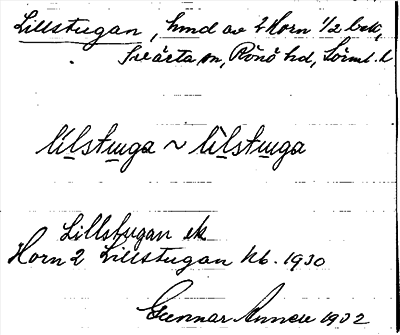 Lillstugan, hmd av 2 Horn 1/2 bek,
Svärta sn, Rönö hd, Sörml. l.
lìlstụga ~ lìlstụga
Lillstugan ek
Horn 2 Lillstugan Jb. 1930
Gunnar Annell 1932